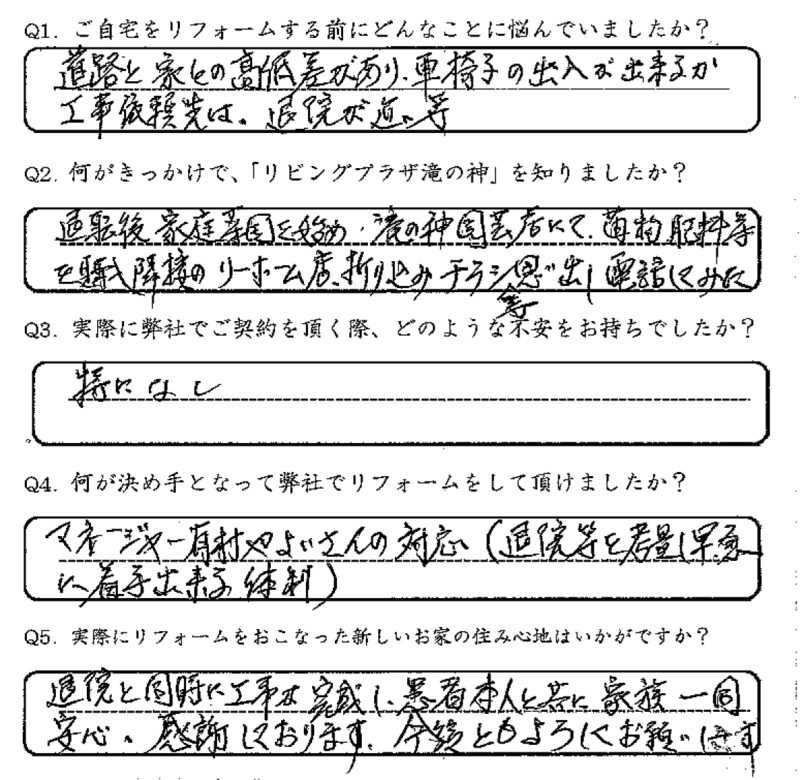 Q1. ご自宅をリフォームする前にどんなことに悩んでいましたか？
道路と家との高低差があり、車椅子の出入が出来るか
工事依頼先は、退院が近い等
Q2. 何がきっかけで、「リビングプラザ滝の神」を知りましたか？
退転後家庭菜園を始め、滝の神園芸店にて、苗物肥料等
を購入隣接のリーホーム店、折り込みチラシ等思い出し電話してみた
Q3. 実際に弊社でご契約を頂く際、どのような不安をお持ちでしたか？
特になし
Q4. 何が決め手となって弊社でリフォームをして頂けましたか？
マネージャー有村やよいさんの対応（退院等を考量し早急
に着手出来る体制）
Q5. 実際にリフォームをおこなった新しいお家の住み心地はいかがですか？
退院と同時に工事は完成し、患者本人と共に家族一同
安心、感謝しております。今後ともよろしくお願いします